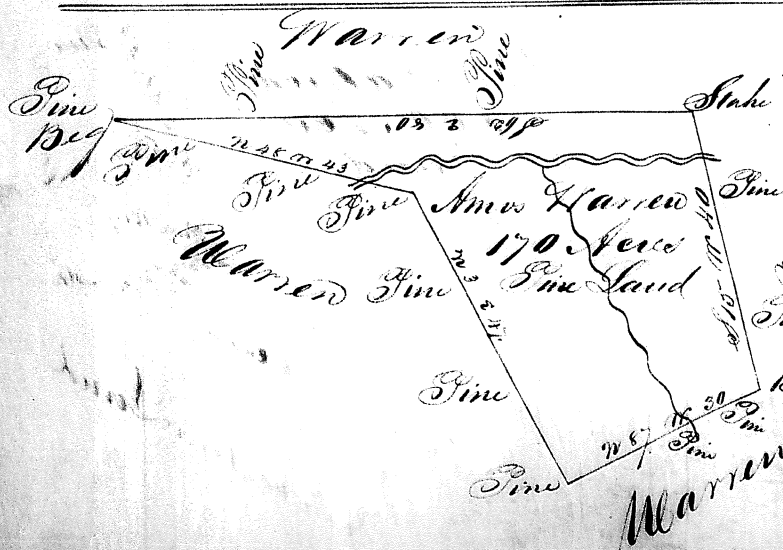 Warren
Pine
Pine
Pine
Beg
Stake
Pine
N 48 W 43
Pine
Pine
Pine
Amos Warren
170 Acres
Pine Land
Warren
Pine
Pine
N 87 W 30
Pine
Pine
Pine
Warren